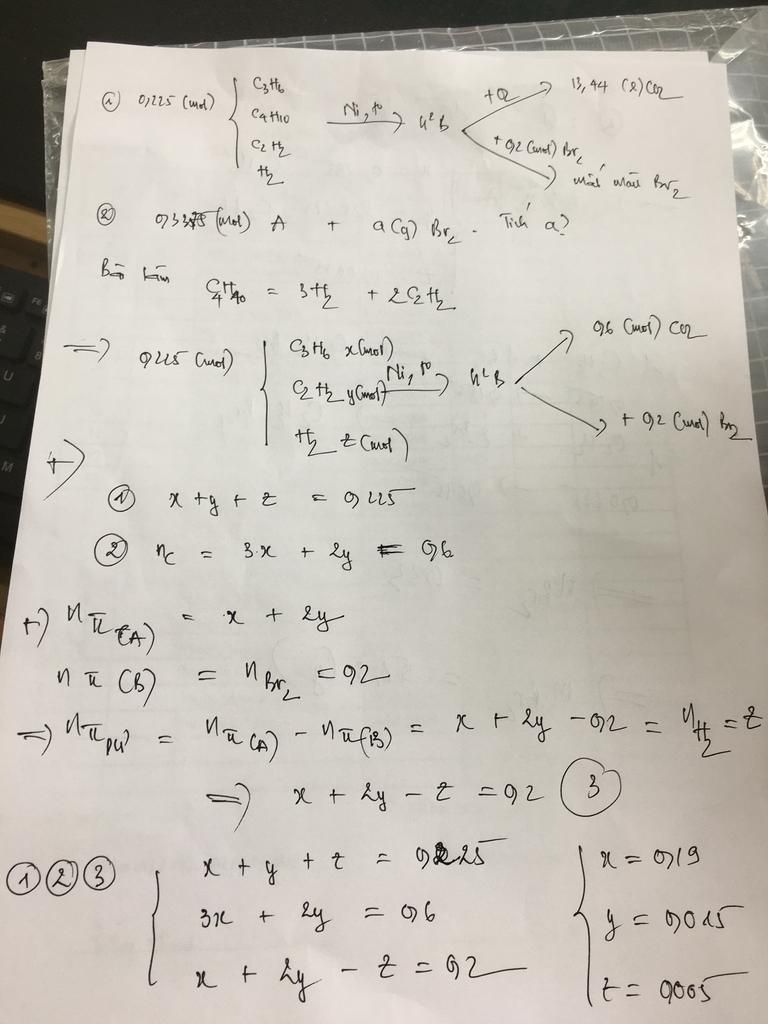 ① 0,225 (mol) { C3H6 C4H10 C2H2 H2 Ni, t° → h² B + O2 → 13,44 (l) CO2
+ 0,2 (mol) Br2 → mất màu Br2
② 0,3375 (mol) A + a(g) Br2. Tính a?
C4H10 = 3H2 + 2C2H2
=> 0,225 (mol) { C3H6 x(mol) C2H2 y(mol) H2 z(mol) Ni, t° → h² B → 0,6 (mol) CO2
→ + 0,2 (mol) Br2
+)
① x + y + z = 0,225
② nC = 3.x + 2y = 0,6
+) nπ(A) = x + 2y
nπ(B) = nBr2 = 0,2
=> nπpư = nπ(A) - nπ(B) = x + 2y - 0,2 = nH2 = z
=> x + 2y - z = 0,2 ③
①②③ { x + y + z = 0,225 { x = 0,19
3x + 2y = 0,6 y = 0,015
x + 2y - z = 0,2 z = 0,005